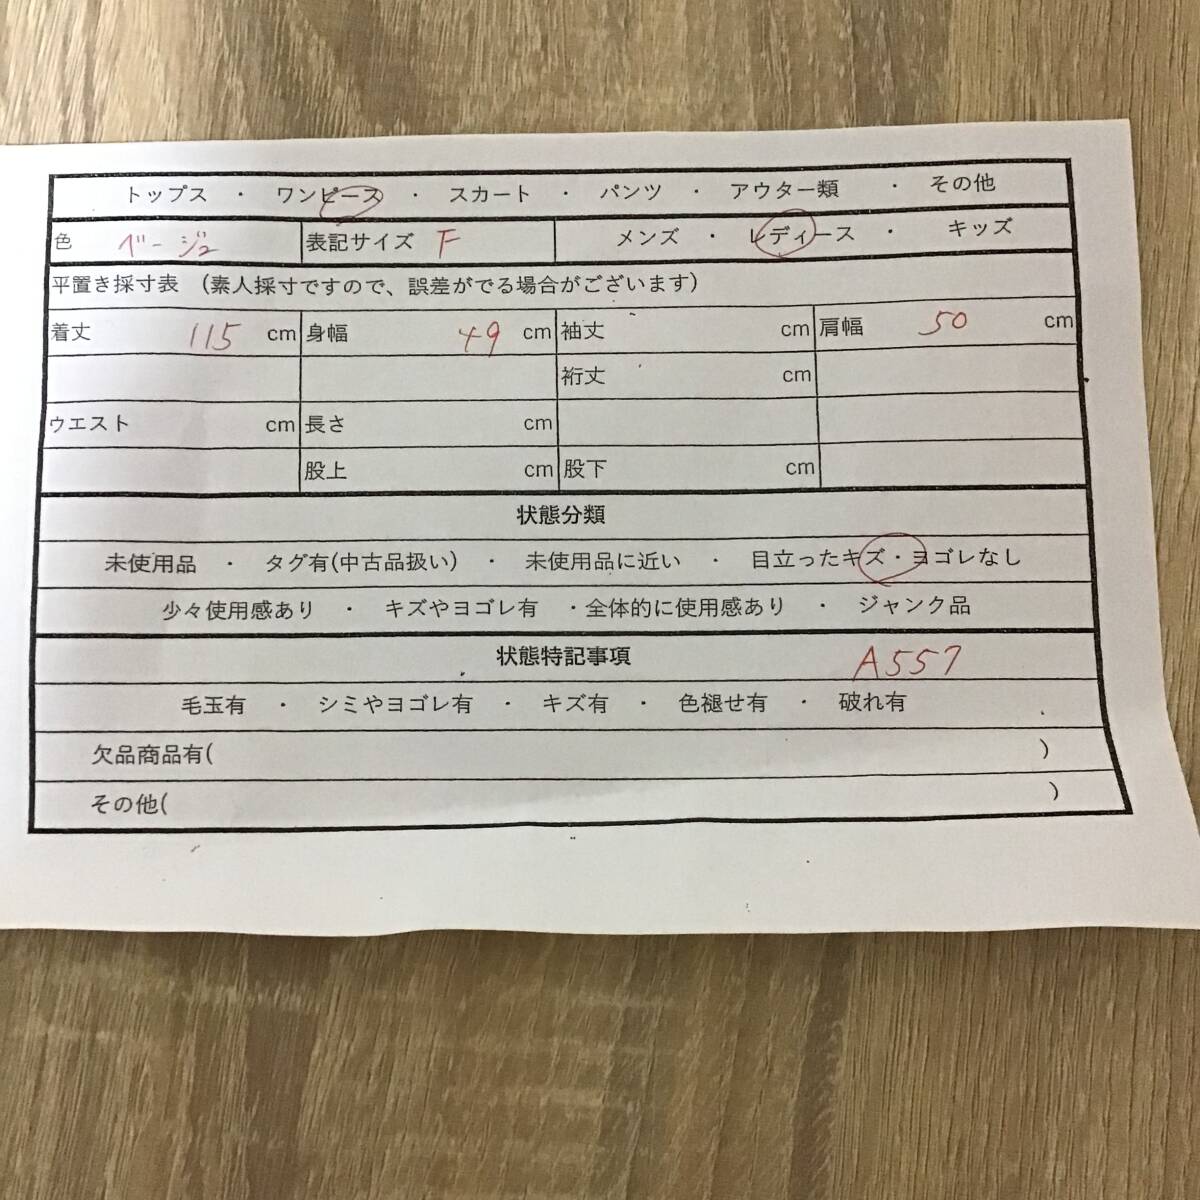 トップス ・ ワンピース ・ スカート ・ パンツ ・ アウター類 ・ その他
色 ベージュ 表記サイズ F メンズ ・ レディース ・ キッズ
平置き採寸表 (素人採寸ですので、誤差がでる場合がございます)
着丈 115 cm 身幅 49 cm 袖丈 cm 肩幅 50 cm
裄丈 cm
ウエスト cm 長さ cm
股上 cm 股下 cm
状態分類
未使用品 ・ タグ有(中古品扱い) ・ 未使用品に近い ・ 目立ったキズ・ヨゴレなし
少々使用感あり ・ キズやヨゴレ有 ・全体的に使用感あり ・ ジャンク品
状態特記事項 A557
毛玉有 ・ シミやヨゴレ有 ・ キズ有 ・ 色褪せ有 ・ 破れ有
欠品商品有( )
その他( )